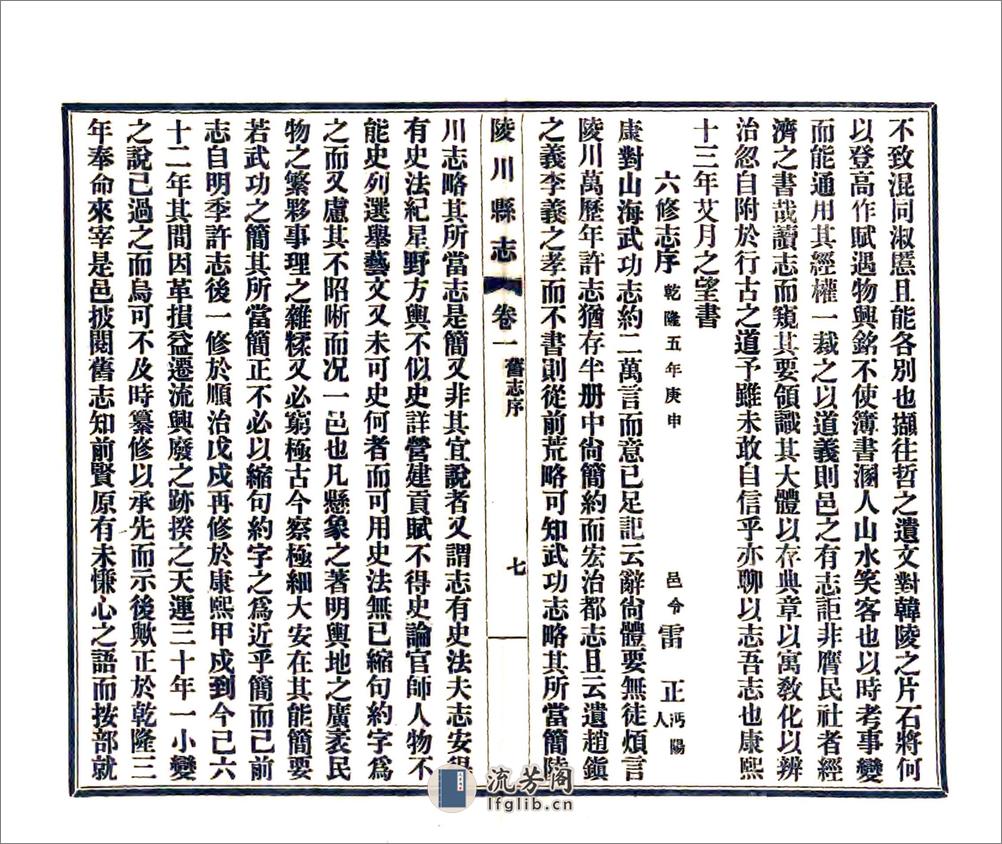 不致混同淑慝且能各別也擷往哲之遺文對韓陵之片石將何
以登高作賦遇物興銘不使簿書溷人山水笑客也以時考事變
而能通用其經權一裁之以道義則邑之有志詎非膺民社者經
濟之書哉讀志而窺其要領識其大體以存典章以寓教化以辨
治忽自附於行古之道予雖未敢自信乎亦聊以志吾志也康熙
十三年艾月之望書
六修志序 乾隆五年庚申 邑令雷正 沔陽人
康對山海武功志約二萬言而意已足記云辭尙體要無徒煩言
陵川萬歷年許志猶存半册中尙簡約而宏治都志且云遺趙鎭
之義李義之孝而不書則從前荒略可知武功志略其所當簡陵
陵川縣志 卷一 舊志序 七
川志略其所當志是簡又非其宜說者又謂志有史法夫志安得
有史法紀星野方輿不似史詳營建貢賦不得史論官師人物不
能史列選舉藝文又未可史何者而可用史法無已縮句約字爲
之而又慮其不昭晰而况一邑也凡懸象之著明輿地之廣袤民
物之繁夥事理之雜糅又必窮極古今察極細大安在其能簡要
若武功之簡其所當簡正不必以縮句約字之爲近乎簡而已前
志自明季許志後一修於順治戊戌再修於康熙甲戌到今已六
十二年其間因革損益遷流興廢之跡揆之天運三十年一小變
之說已過之而烏可不及時纂修以承先而示後歟正於乾隆三
年奉命來宰是邑披閱舊志知前賢原有未慊心之語而按部就
流芳阁
lfglib.cn